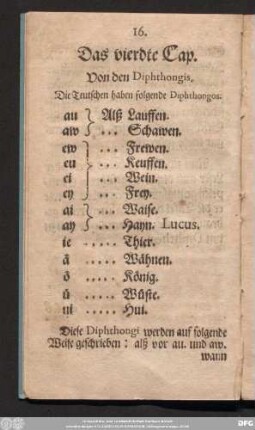 16.
Das vierdte Cap.
Von den Diphthongis.
Die Teutschen haben folgende Diphthongos.
au } Alß Lauffen.
aw } ... Schawen.
ew } ... Frewen.
eu } ... Keuffen.
ei } ... Wein.
ey } ... Frey.
ai } ... Waise.
ay } ... Hayn. Lucus.
ie ..... Thier.
ä ..... Wähnen.
ö ..... König.
ü ..... Wüste.
ui ..... Hui.
Diese Diphthongi werden auf folgende
Weise geschrieben: alß vor au. und aw.
wann
SLUB
DFG